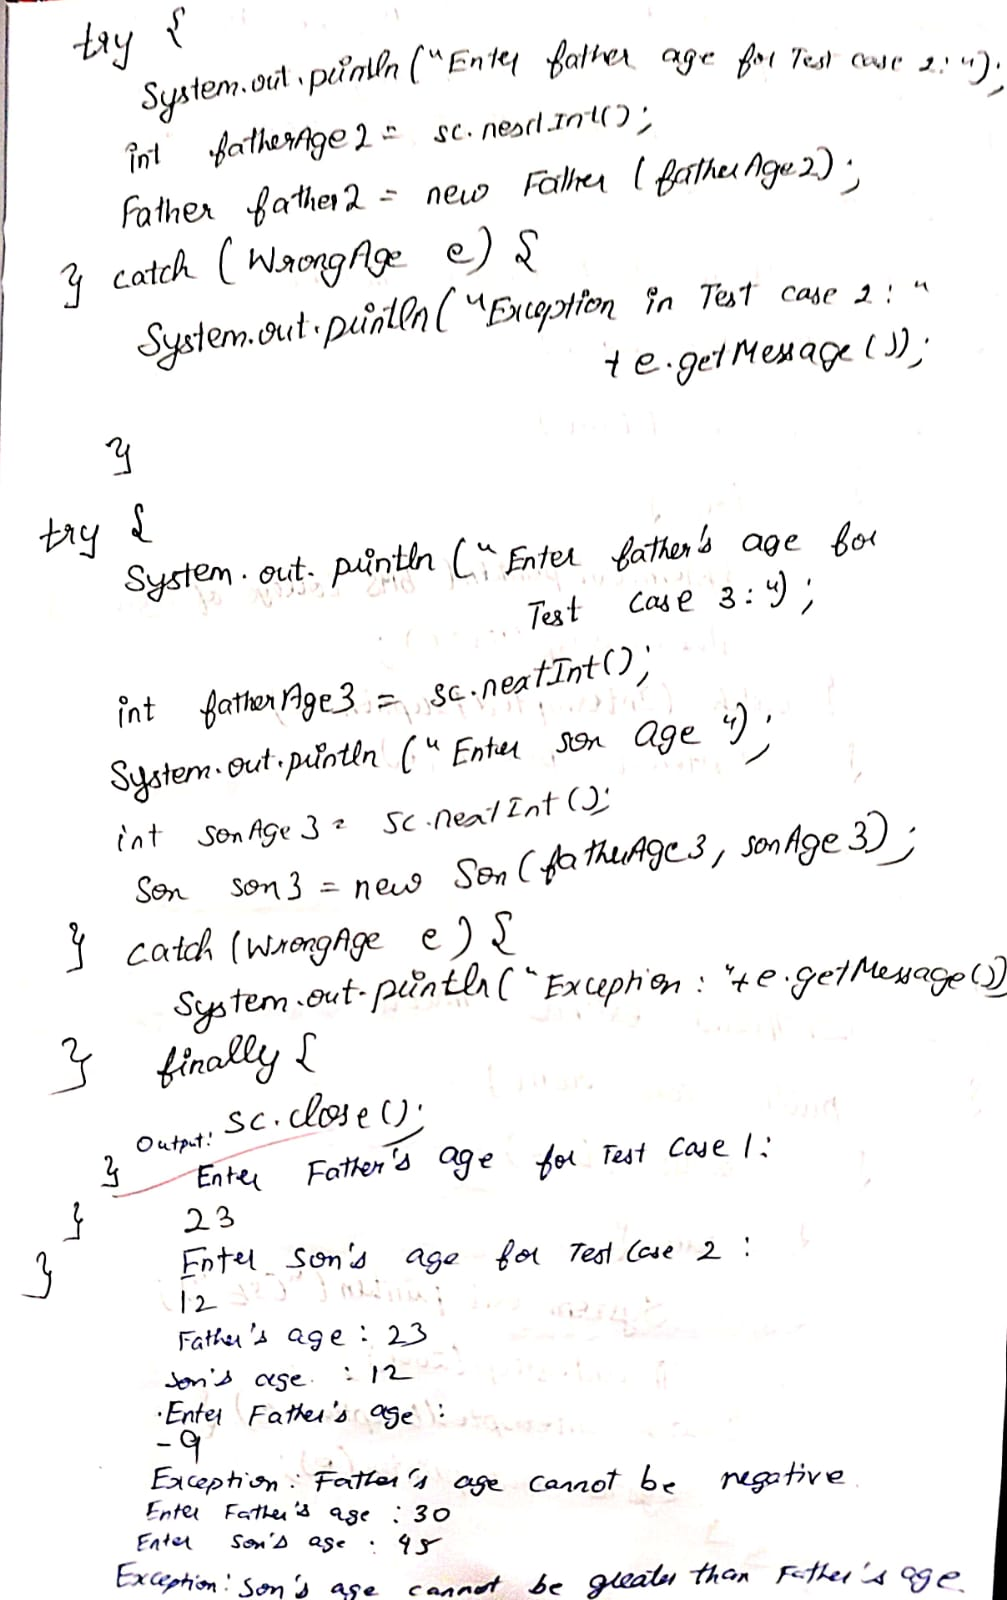 try {
System.out.println ("Enter father age for Test case 2:");
int fatherAge2 = sc.nextInt();
Father father2 = new Father (fatherAge2);
} catch (WrongAge e) {
System.out.println("Exception in Test case 2: "
+ e.getMessage());
}
try {
System.out.println ("Enter father's age for
Test case 3:");
int fatherAge3 = sc.nextInt();
System.out.println ("Enter son age");
int sonAge3 = sc.nextInt();
Son son3 = new Son (fatherAge3, sonAge3);
} catch (WrongAge e) {
System.out.println("Exception: "+e.getMessage())
} finally {
sc.close();
Output:
} Enter Father's age for Test Case 1:
} 23
} Enter Son's age for Test Case 2 :
12
Father's age : 23
Son's age. : 12
Enter Father's age :
-9
Exception: Father's age cannot be negative.
Enter Father's age : 30
Enter Son's age : 45
Exception: Son's age cannot be greater than Father's age.